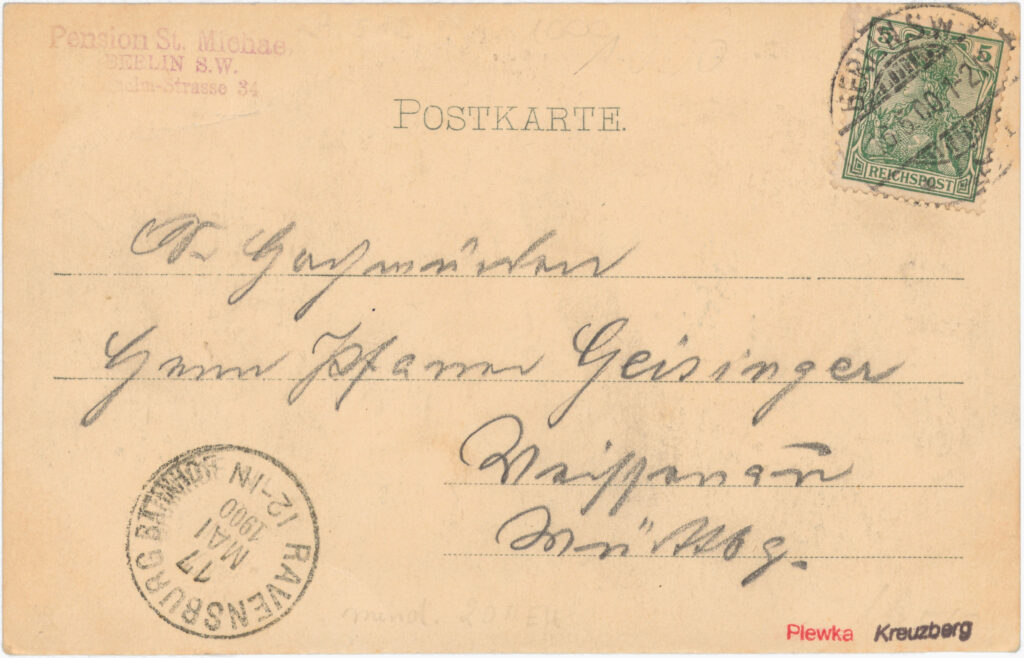 Pension St. Michae
BERLIN S.W.
helm-Strasse 34
POSTKARTE.
BERLIN S.W.
5 5
REICHSPOST
Sr. Hochwürden
Herrn Pfarrer Geisinger
Weissenau
Württbg.
RAVENSBURG BAHNHOF
17
MAI
1900
12-1N
mind. 20
Plewka Kreuzberg